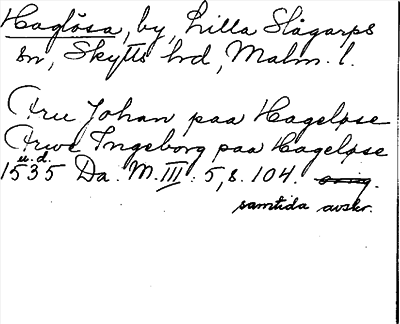 Haglösa, by, Lilla Slågarps
sn, Skytts hd, Malm. l.
Fru Johan paa Hageløse
Frwe Ingeborg paa Hageløse
u.d.
1535 Da. M. III : 5, s. 104. orig.
samtida avskr.